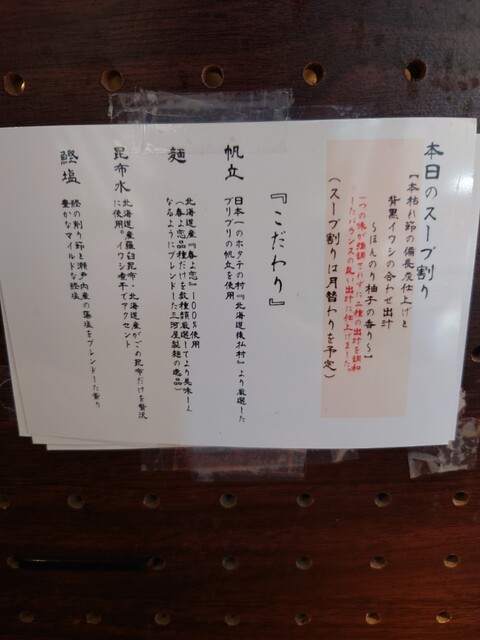 本日のスープ割り
【本枯れ節の備長炭仕上げと
背黒イワシの合わせ出汁
～ほんのり柚子の香り～】
一つの味が強調されずに二種の出汁を調和
したバランスの良い出汁に仕上げました。
（スープ割りは月替わりを予定）
『こだわり』
帆立
日本一のホタテの村『北海道猿払村』より厳選した
プリプリの帆立を使用
麺
北海道産『春よ恋』100％使用
（春よ恋品種だけを数種類厳選してより美味しく
なるようにブレンドした三河屋製麺の逸品）
昆布水
北海道産羅臼昆布・北海道産がごめ昆布だけを贅沢
に使用。イワシ煮干でアクセント
鰹塩
鰹の削り節と瀬戸内産の藻塩をブレンドした香り
豊かなマイルドな鰹塩